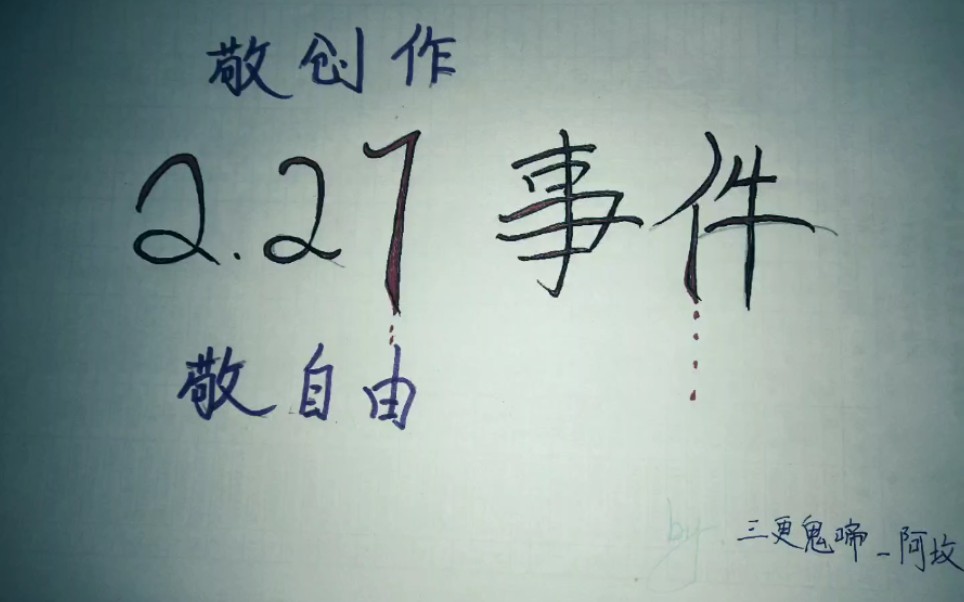 敬创作
2.27事件
敬自由
by
三更鬼啼_阿坟